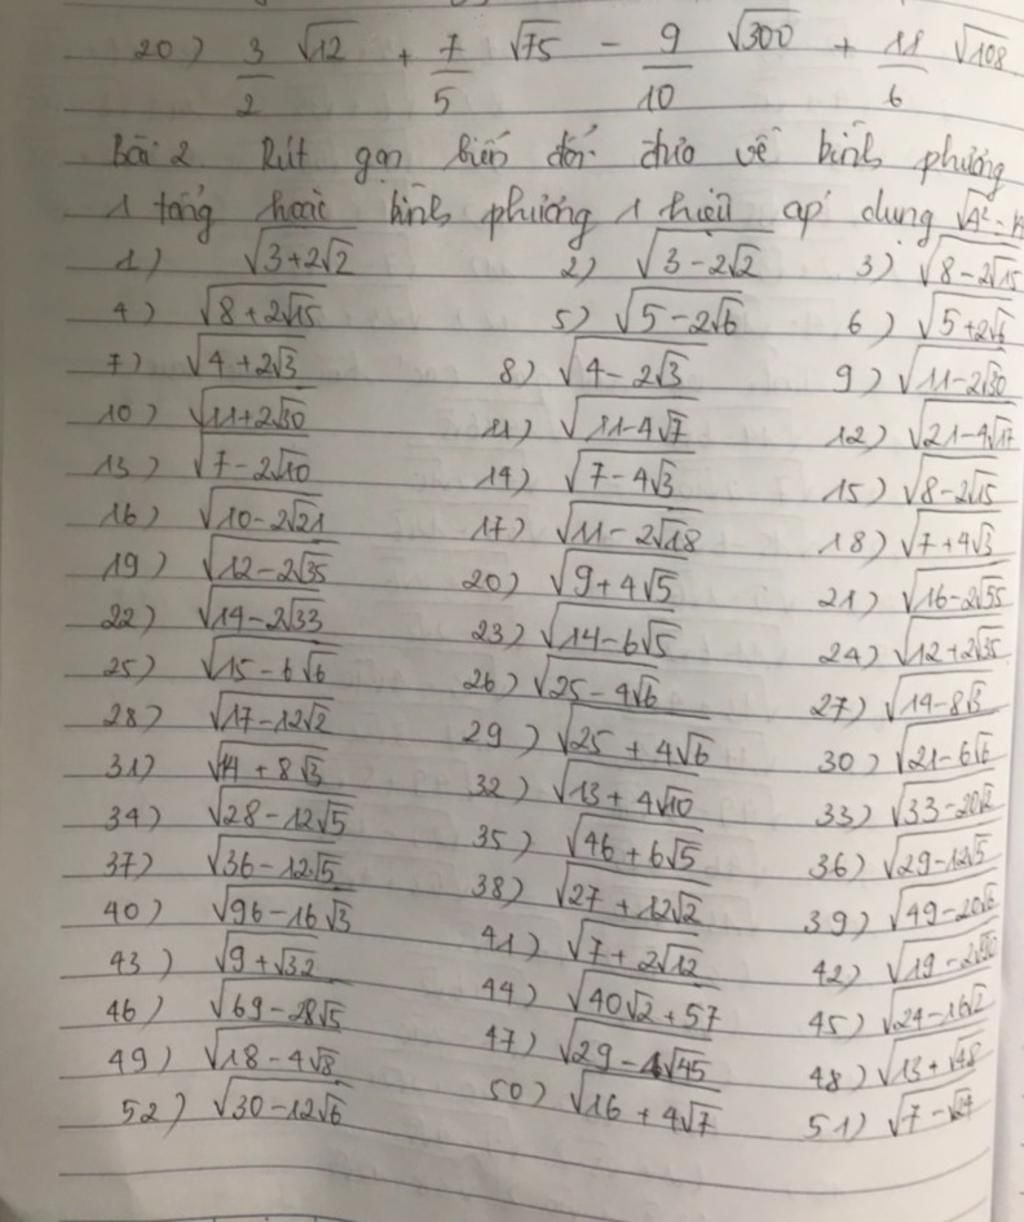 20) 3/2 √12 + 7/5 √75 − 9/10 √300 + 11/6 √108
Bài 2 Rút gọn biến đổi đưa về bình phương
1 tổng hoặc bình phương 1 hiệu áp dụng
1) √(3+2√2) 2) √(3−2√2) 3) √(8−2√15)
4) √(8+2√15) 5) √(5−2√6) 6) √(5+2√6)
7) √(4+2√3) 8) √(4−2√3) 9) √(11−2√30)
10) √(11+2√30) 11) √(11−4√7) 12) √(21−4√17)
13) √(7−2√10) 14) √(7−4√3) 15) √(8−2√15)
16) √(10−2√21) 17) √(11−2√18) 18) √(7+4√3)
19) √(12−2√35) 20) √(9+4√5) 21) √(16−2√55)
22) √(14−2√33) 23) √(14−6√5) 24) √(12+2√35)
25) √(15−6√6) 26) √(25−4√6) 27) √(19−8√3)
28) √(17−12√2) 29) √(25+4√6) 30) √(21−6√6)
31) √(14+8√3) 32) √(13+4√10) 33) √(33−20√2)
34) √(28−12√5) 35) √(46+6√5) 36) √(29−12√5)
37) √(36−12√5) 38) √(27+12√2) 39) √(49−20√6)
40) √(96−16√3) 41) √(7+2√12) 42)
43) √(9+√32) 44) √(40√2+57) 45) √(24−16√2)
46) √(69−28√5) 47) √(29−4√45) 48) √(13+√48)
49) √(18−4√8) 50) √(16+4√7) 51) √(7−√24)
52) √(30−12√6)